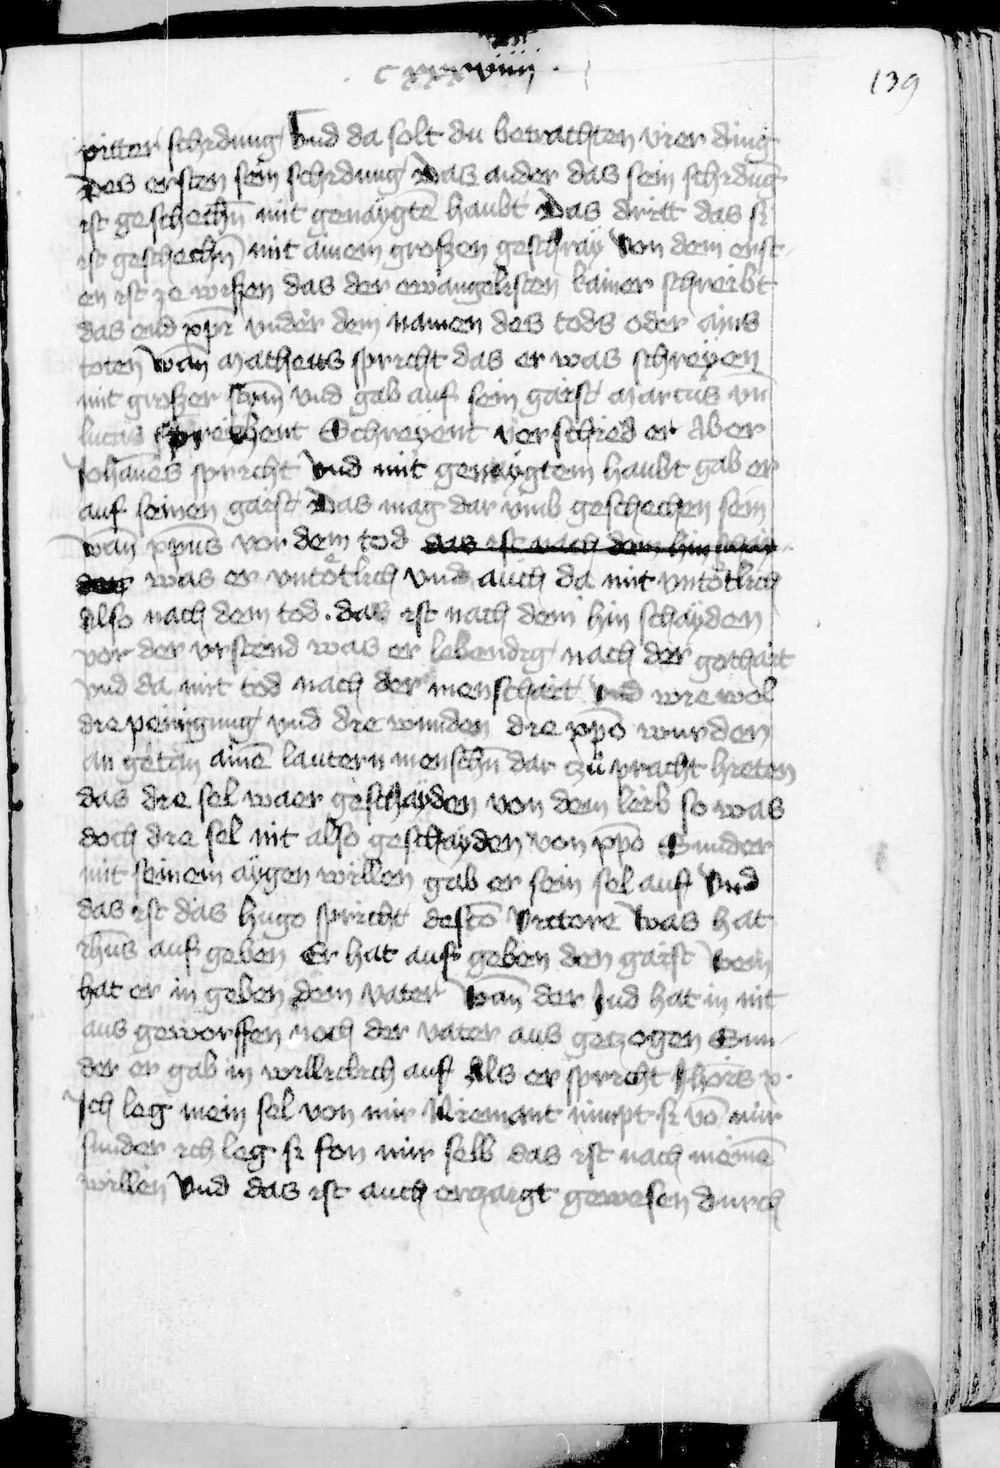 cxxxviiij
139
pitter schidung Vnd da solt du betrachten vier ding
Des ersten sein schidung Das ander das sein schidūg
ist geschechn̄ mit genaygtē haubt Das dritt das si
ist geschechn̄ mit ainem groſſen geschray Von dem erst
en ist ze wiſſen das der ewangelisten kainer schreibt
das end xpi vnder dem namen des tods oder ains
toten Wan̄ Matheus spricht das er was schreyen
mit groſſer stym̄ vnd gab auf sein gaist Marcus vn̄
lucas sprechent Schreyent verschied er Aber
Johānes spricht Vnd mit genaygtem haubt gab er
auf seinen gaist Das mag dar vmb geschechen sein
wan̄ xpūs vor dem tod das ist nach dem hin schay
den was er vntötlich vnd auch da mit vntötlich
Also nach dem tod . das ist nach dem hin schayden
vor der vrstend was er lebendig nach der gothait
vnd da mit tod nach der menschait Vnd wie wol
die peinigung vnd die wunden die xpō wurden
an getan ainē lautern menschn̄ dar zu pracht hieten
das die sel waer geschayden von dem leib so was
doch die sel nit also geschayden von xpō Sunder
mit seinem aygen willen gab er sein sel auf Vnd
das ist das hugo spricht de sctō victore Was hat
ihūs auf geben Er hat auf geben den gaist Wem
hat er in geben dem vater Wan̄ der Jud hat in nit
aus geworffen noch der vater aus gezogen Sun
der er gab in williclich auf Als er spricht Johis x.
Ich leg mein sel von mir Niemant nimpt si vō mir
sunder ich leg si fon mir selb das ist nach meinē
willen Vnd das ist auch erzaigt gewesen durch